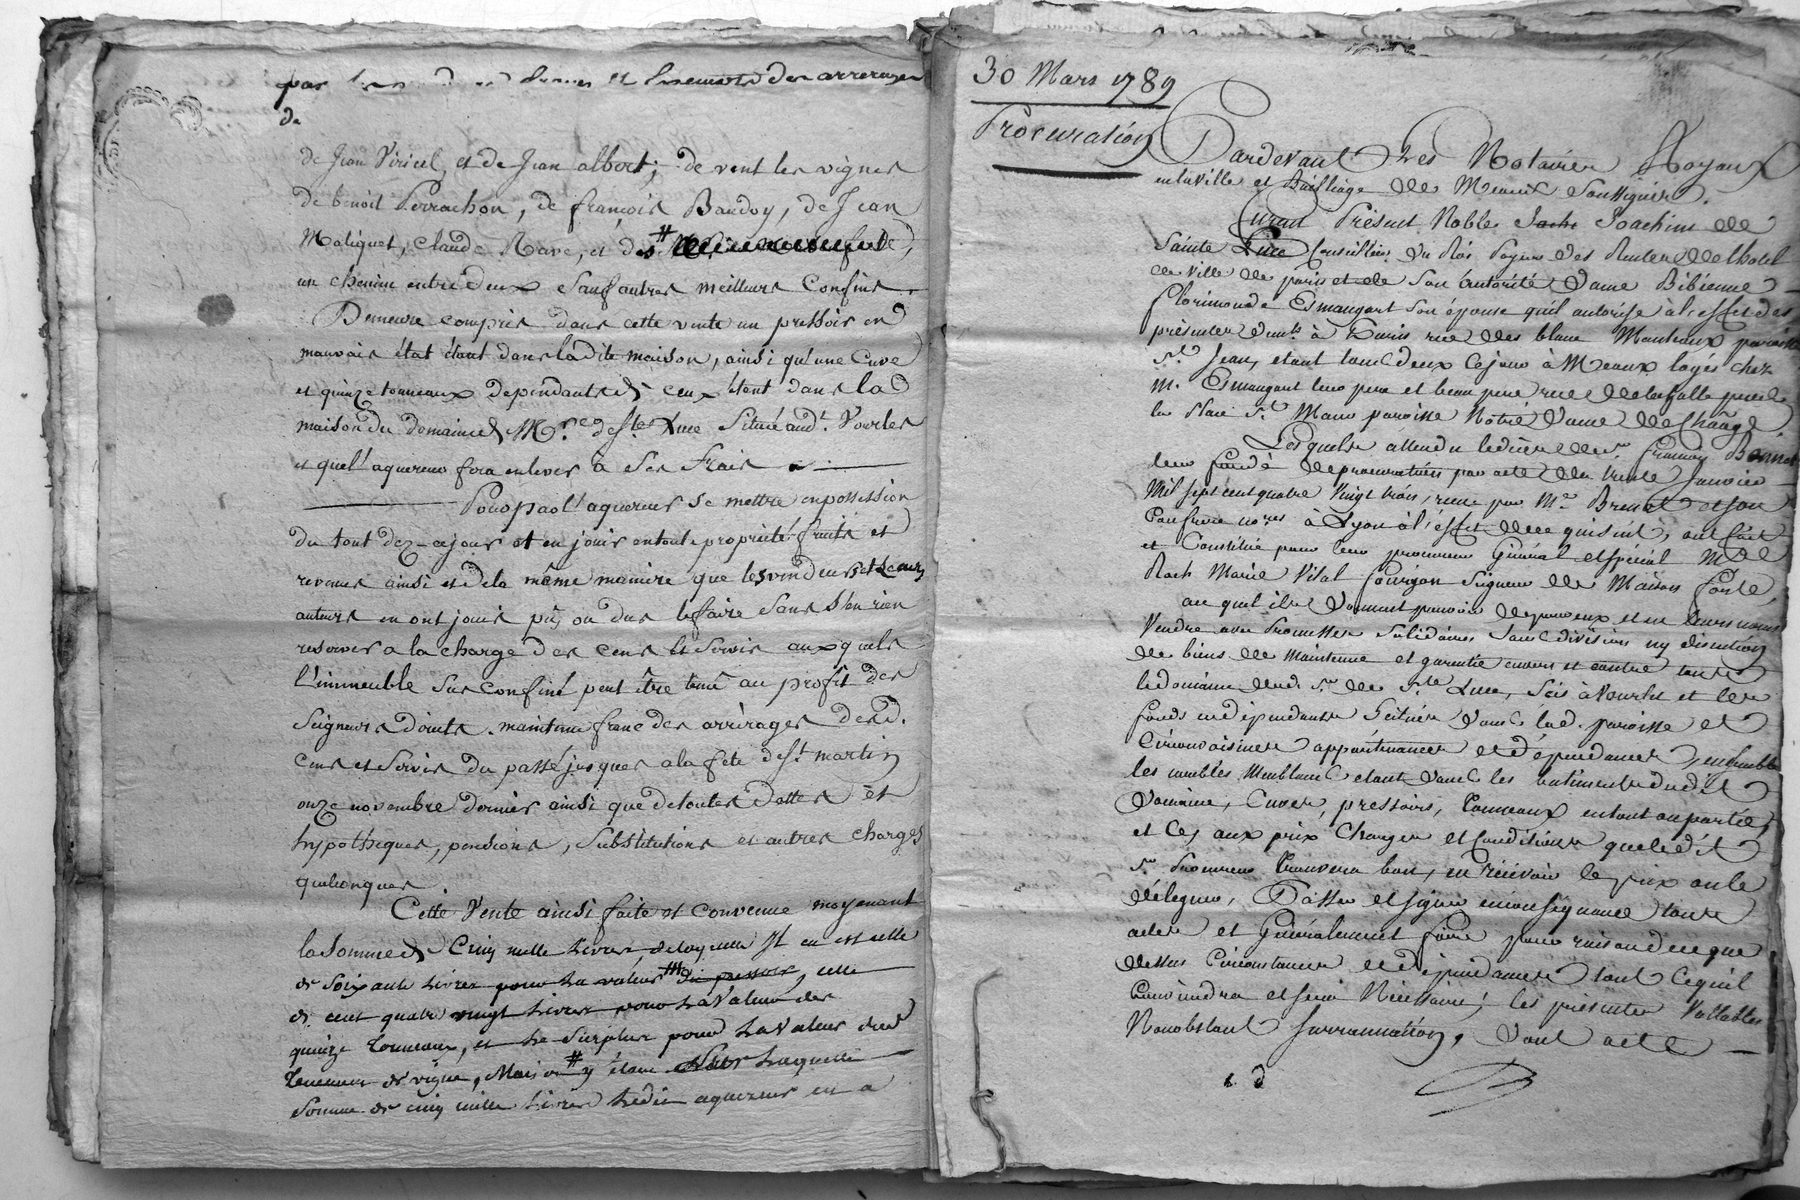 par
de
de Jean Viricel, et de Jean albert; de vent les vignes
de benoit Perrachon, de françois Baudoy, de Jean
Moliquet, Claude Nave, et des #
un chemin entre deux Sauf autres meilleurs Confins.
Demeure compris dans cette vente un pressoir en
mauvais état étant dans la dite maison, ainsi qu'une Cuve
et quinze tonneaux dependants & ceux étant dans la
maison du domaine de Mr. de Ste Luce Situé aud.t Vourles
et que l'aquereur fera enlever à Ses frais
Pour par l'aquereur Se mettre en possession
du tout dez ce jour et en jouir en toute propriété fruits et
revenus ainsi et de la même maniere que les vendeurs et Leurs
auteurs en ont joui pû, ou dus le faire Sans S'en rien
reserver a la charge des cens et Servis auxquels
l'immeuble Sus confiné peut être tenu au profit des
Seigneurs directs. maintenu franc des arrérages desd.
cens et Servis du passé jusques a la fête de St martin
onze novembre dernier ainsi que de toutes dettes et
hypotheques, pensions, Substitutions et autres charges
quelconques
Cette Vente ainsi faite et convenue moyenant
la Somme de Cinq mille Livres, de laquelle Il en est celle
de Soixante Livres pour La valeur du pressoir, celle
de cent quatre vingt Livres pour La Valeur des
quinze Tonneaux, et Le Surplus pour La Valeur dud
Tenement de vigne, Maison # y étant Laquelle
Somme de cinq mille Livres Ledit aquereur en a
30 Mars 1789
Procuration
Pardevant Les Notaires Royaux
en la Ville et Bailliage de Meaux Soussignés.
Furent Présent Noble Joachim de
Sainte Luce Conseiller du Roi Payeur des Rentes de l'hotel
de ville de paris et de Son autorité Dame Bibienne
Florimonde Esmangart Son épouse qu'il autorise à l'effet des
présentes demts à Paris rue des blanc Manteaux paroisse
St. Jean, etant tous deux ce jour à Meaux logés chez
M. Esmangart leur pere et beau pere rue de la halle près de
la Place St Maur paroisse Notre Dame de Chaâge
Lesquels attendu le décès de Sr. François Bonnet
leur fondé de procuration par acte du trente Janvier
Mil Sept cent quatre Vingt trois, recue par Me. Brenot et Son
Confrere nores à Lyon à l'effet de ce qui Suit, ont fait
et Constitué pour leur procureur Général et Spécial Mr
Roch Marie Vital Courgon Seigneur de Maison forte,
auquel ils donnent pouvoir de pour eux et en leurs noms
Vendre avec Promesses Solidaires Sans division ny discution
de biens de maintenue et garantie envers et contre tous
le domaine dud. Sr. de Ste Luce, Sis à Vourles et les
fonds en dépendants Scitués dans lad. paroisse et
Circonvoisines appartenances et dépendances, ensemble
les meubles Meublans etant dans les batiments dudit
Domaine, Cuves, pressoirs, Tonneaux en tout ou partie
et Ce, aux prix Charges et Conditions que ledit
Sr. Procureur trouvera bon, en recevoir le prix ou le
déléguer, Passer et Signer en conséquence tous
actes et Généralement faire pour raison de ce que
dessus Circonstances et dépendances tout Ce qu'il
Conviendra et Sera Nécessaire; les présentes Vallables
Nonobstant Surrannation, Dont acte